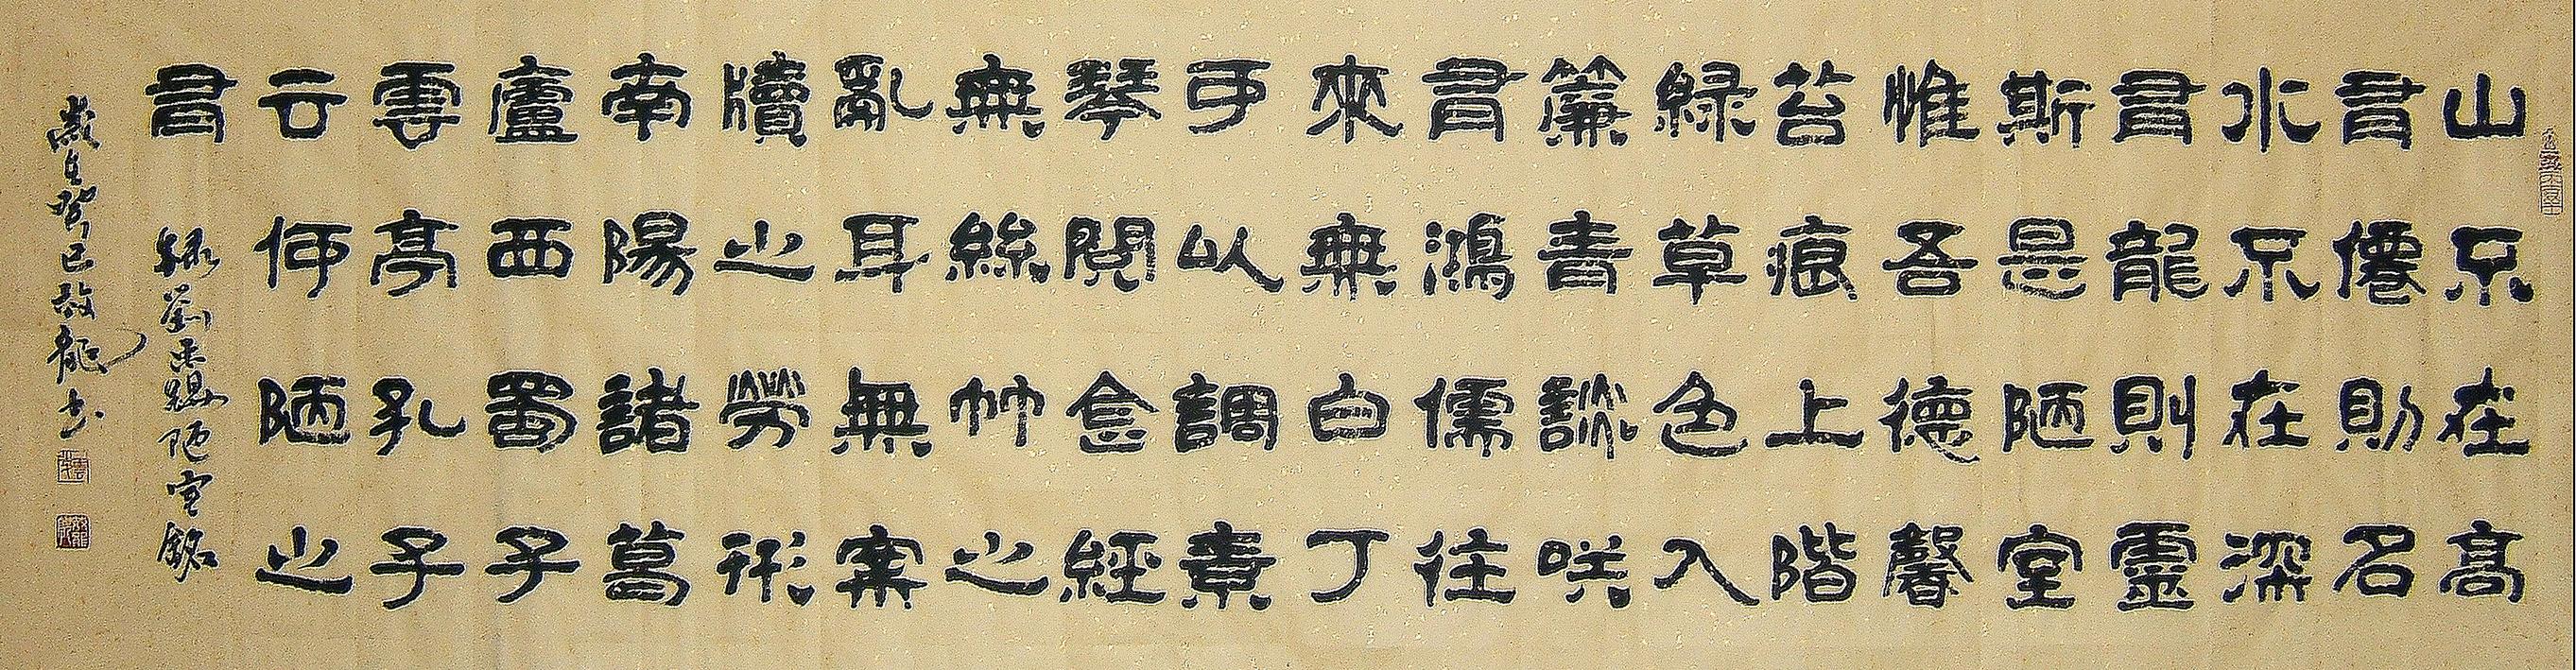 山不在高
有僊則名
水不在深
有龍則靈
斯是陋室
惟吾德馨
苔痕上階
綠草色入
簾青談咲
有鴻儒往
來無白丁
可以調素
琴閱金經
無絲竹之
亂耳無案
牘之勞形
南陽諸葛
廬西蜀子
雲亭孔子
云何陋之
有 錄劉禹錫陋室銘
歲在癸巳龍書